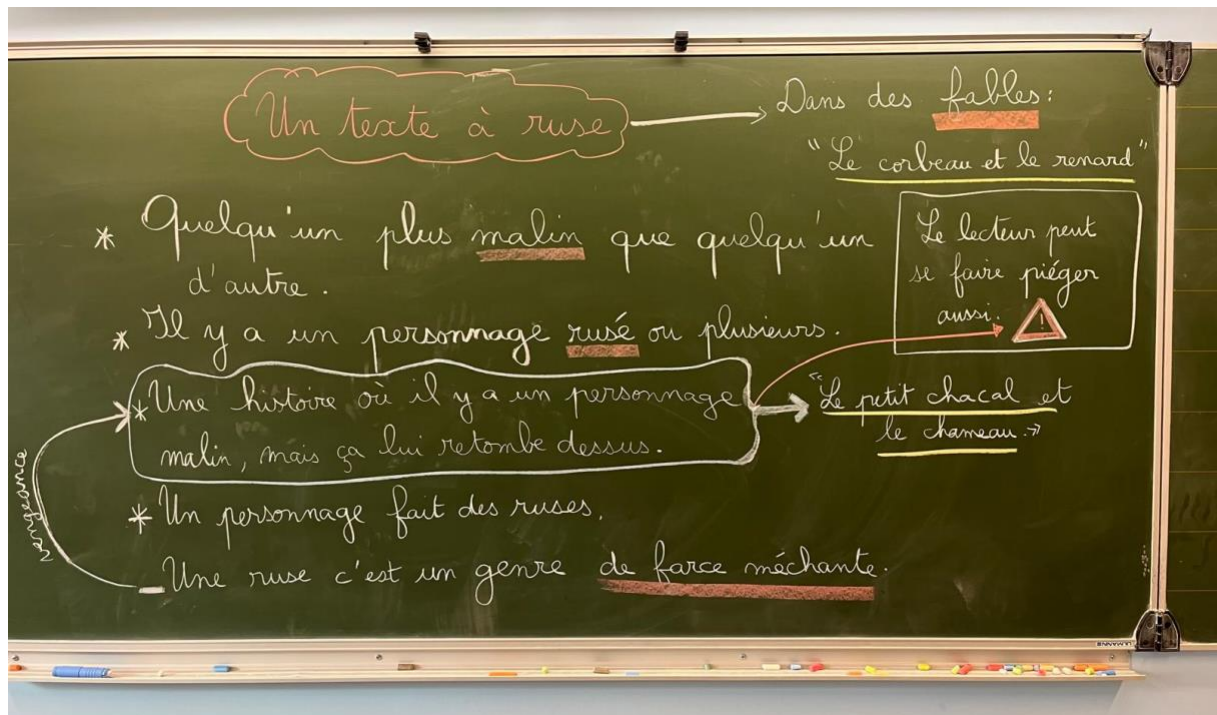 Un texte à ruse
Dans des fables :
"Le corbeau et le renard"
* Quelqu'un plus malin que quelqu'un
d'autre.
* Il y a un personnage rusé ou plusieurs.
Le lecteur peut
se faire piéger
aussi.
!
* Une histoire où il y a un personnage
malin, mais ça lui retombe dessus.
"Le petit chacal et
le chameau."
vengeance
* Un personnage fait des ruses.
- Une ruse c'est un genre de farce méchante.